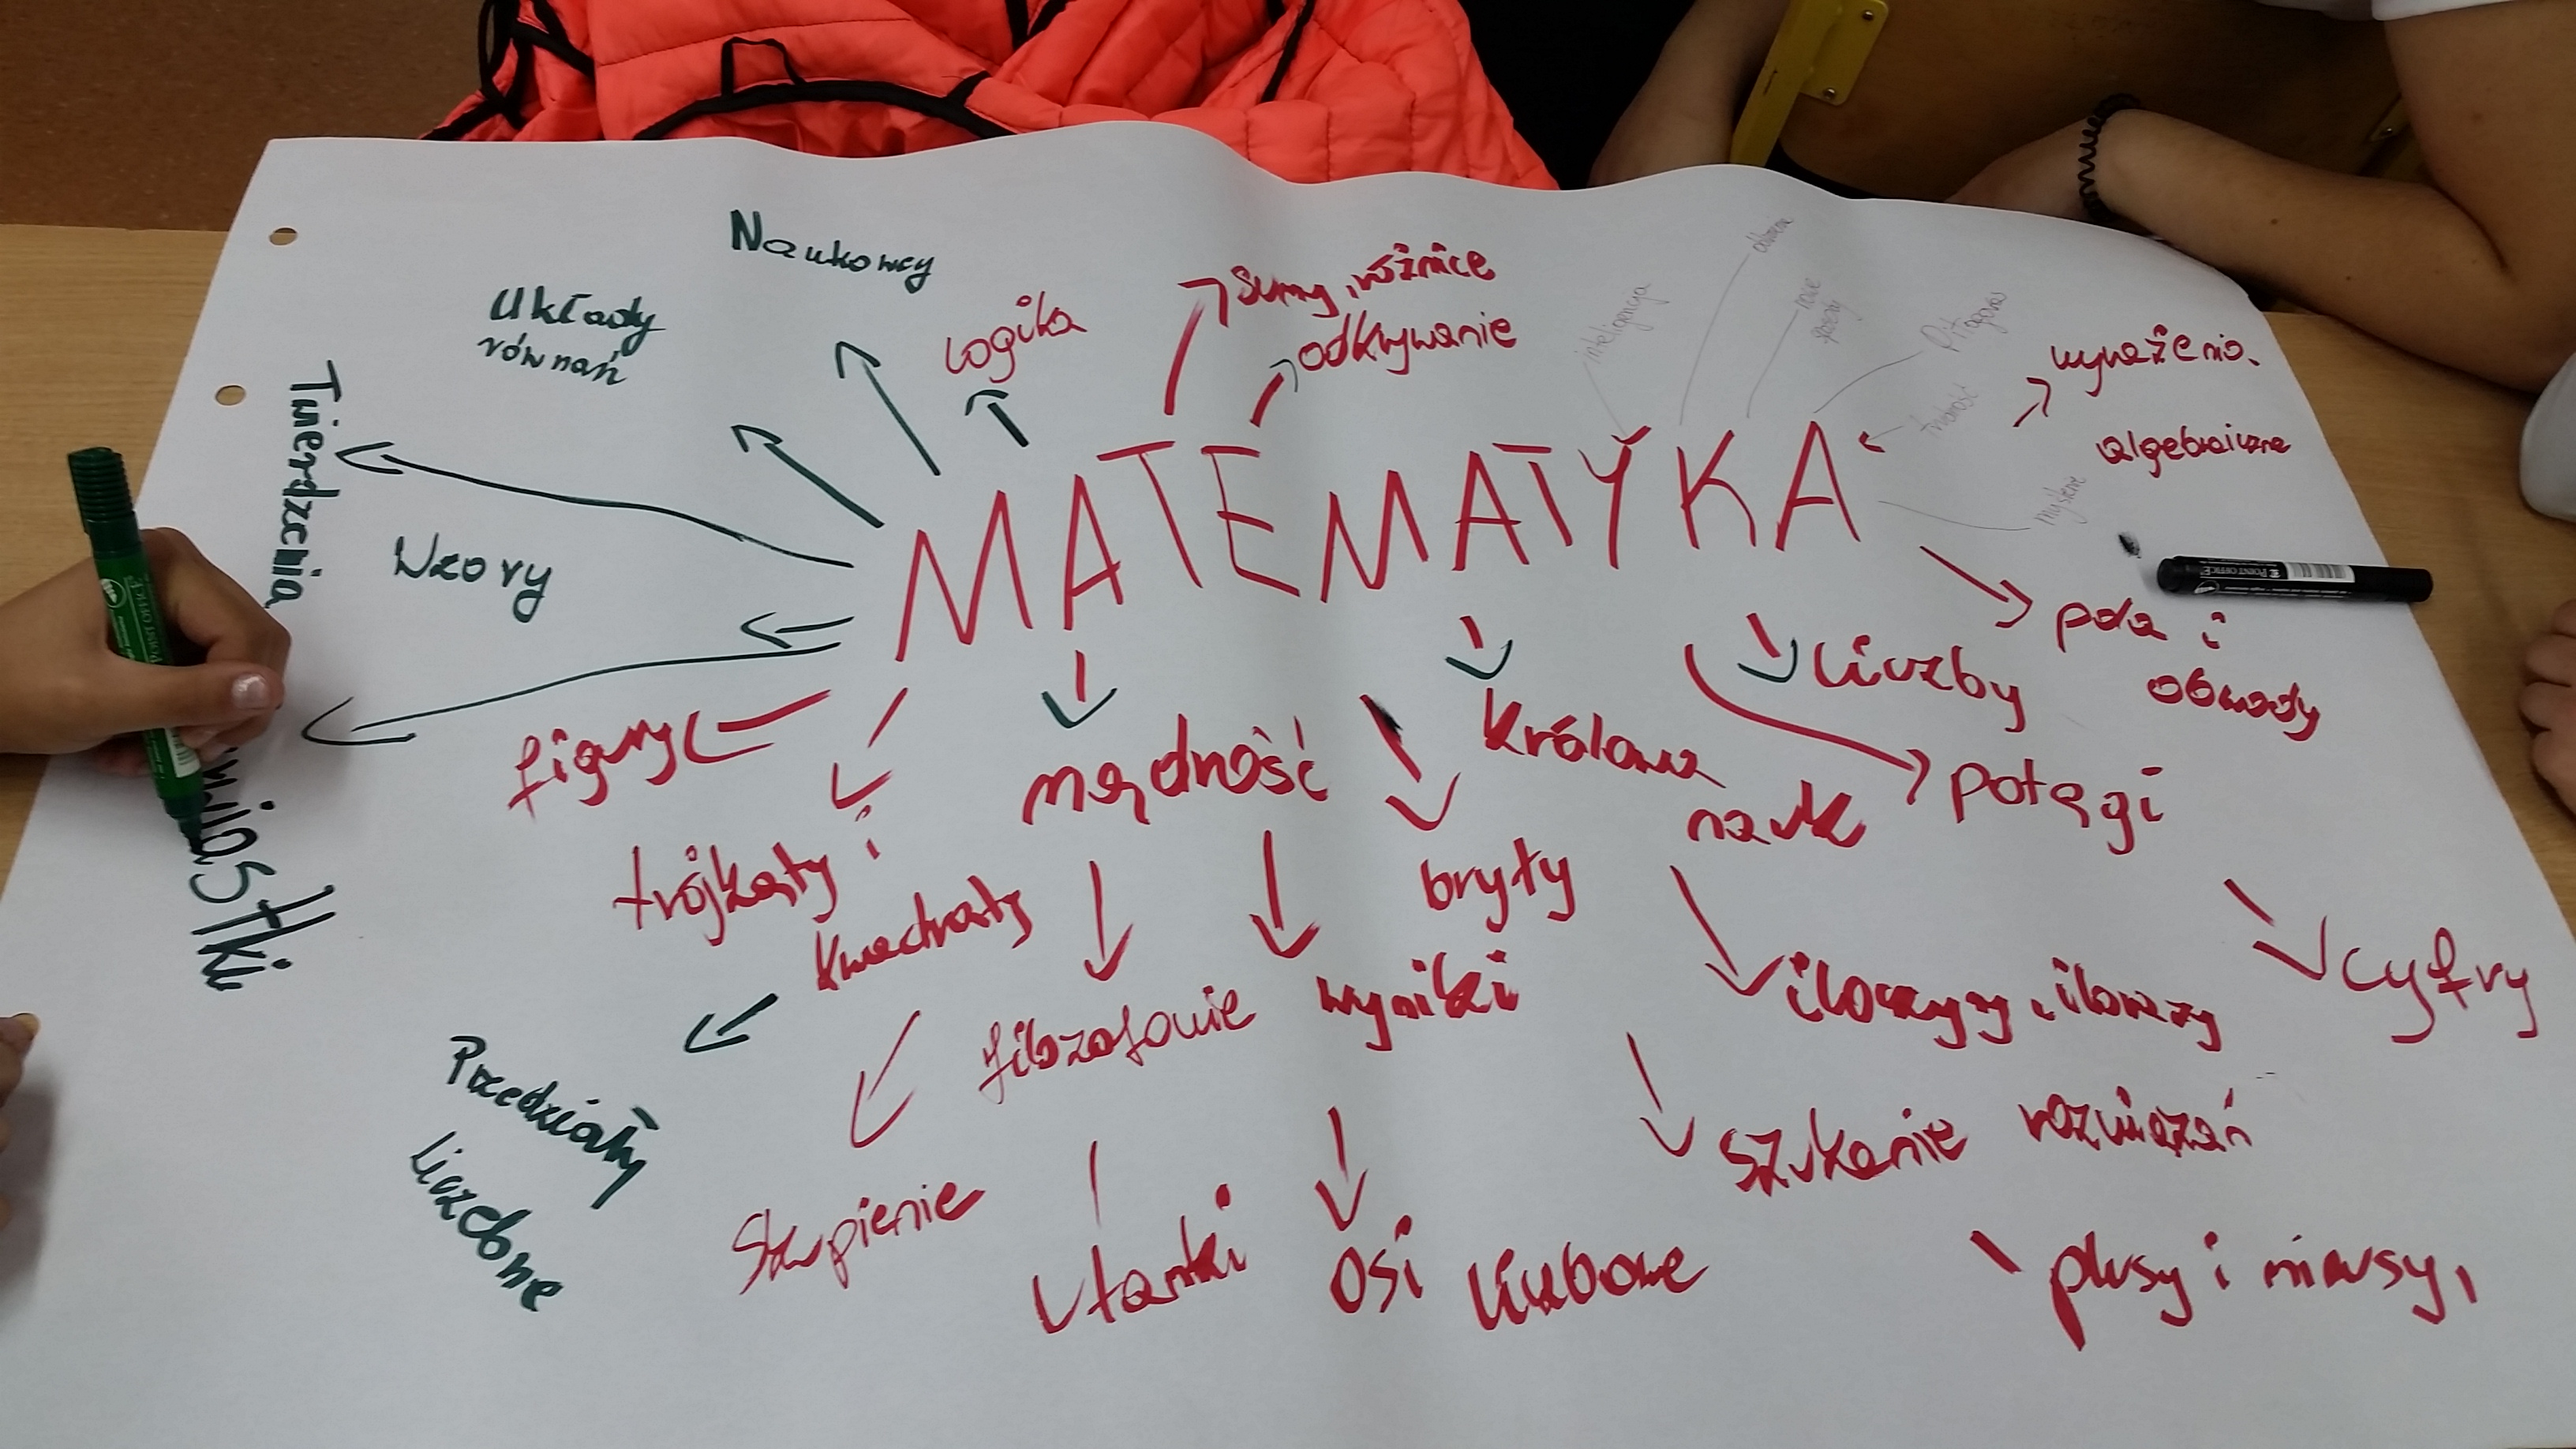 Naukowcy
Układy
równań
Twierdzenia
Wzory
logika
sumy, różnice
odkrywanie
inteligencja
Pitagoras
trudność
myślenie
wyrażenia
algebraiczne
MATEMATYKA
pola i
obwody
liczby
potęgi
królowa
nauk
mądrość
figury
trójkąty i
kwadraty
bryły
filozofowie
wyniki
iloczyny, ilorazy
cyfry
Przedziały
liczbowe
skupienie
ułamki
osi liczbowe
szukanie rozwiązań
plusy i minusy,
POINT OFFICE
POINT OFFICE